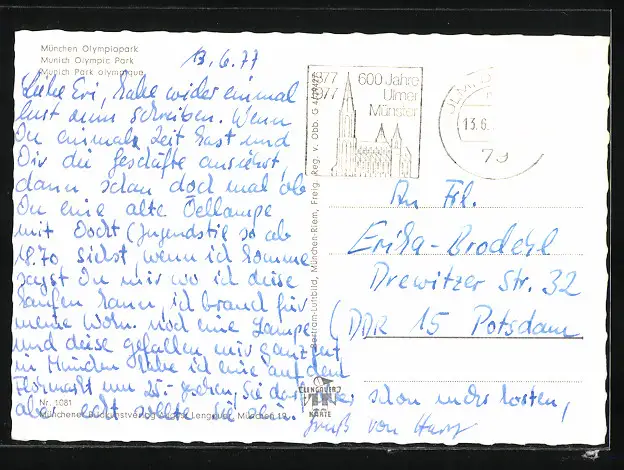 München Olympiapark
Munich Olympic Park
Munich Park olympique
13.6.77
Liebe Eri, habe wider einmal
lust zum schreiben. Wenn
Du einmal Zeit hast und
Dir die Geschäfte ansiehst,
dann schau doch mal ob
Du eine alte Öllampe
mit Docht (Jugendstil so ab
1870 siehst, wenn ich komme
zeigst Du mir wo ich diese
kaufen kann, ich brauch für
meine Wohn. noch eine Lampe
und diese gefallen mir ganz gut,
in München habe ich eine auf dem
Flohmarkt um 25.- gesehen, Sie darf aber schon mehr kosten,
aber echt sollte sie sein.
Gruß von Harry
Nr. 1081
Münchener Lengauer, München 19
LENGAUER
KARTE
Bertram-Luftbild, München-Riem, Freig. Reg. v. Obb. G 4/
1377
1977
600 Jahre
Ulmer
Münster
ULM
13.6.
79
An Frl.
Erika-Brodehl
Drewitzer Str. 32
(DDR 15 Potsdam